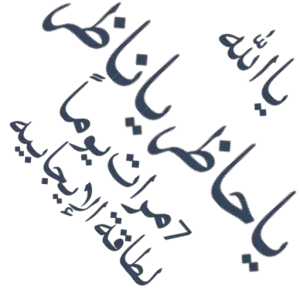 ياالله
ياحاضر ياناظر
7 مرات يوماً
لطاقة الإيجابيه